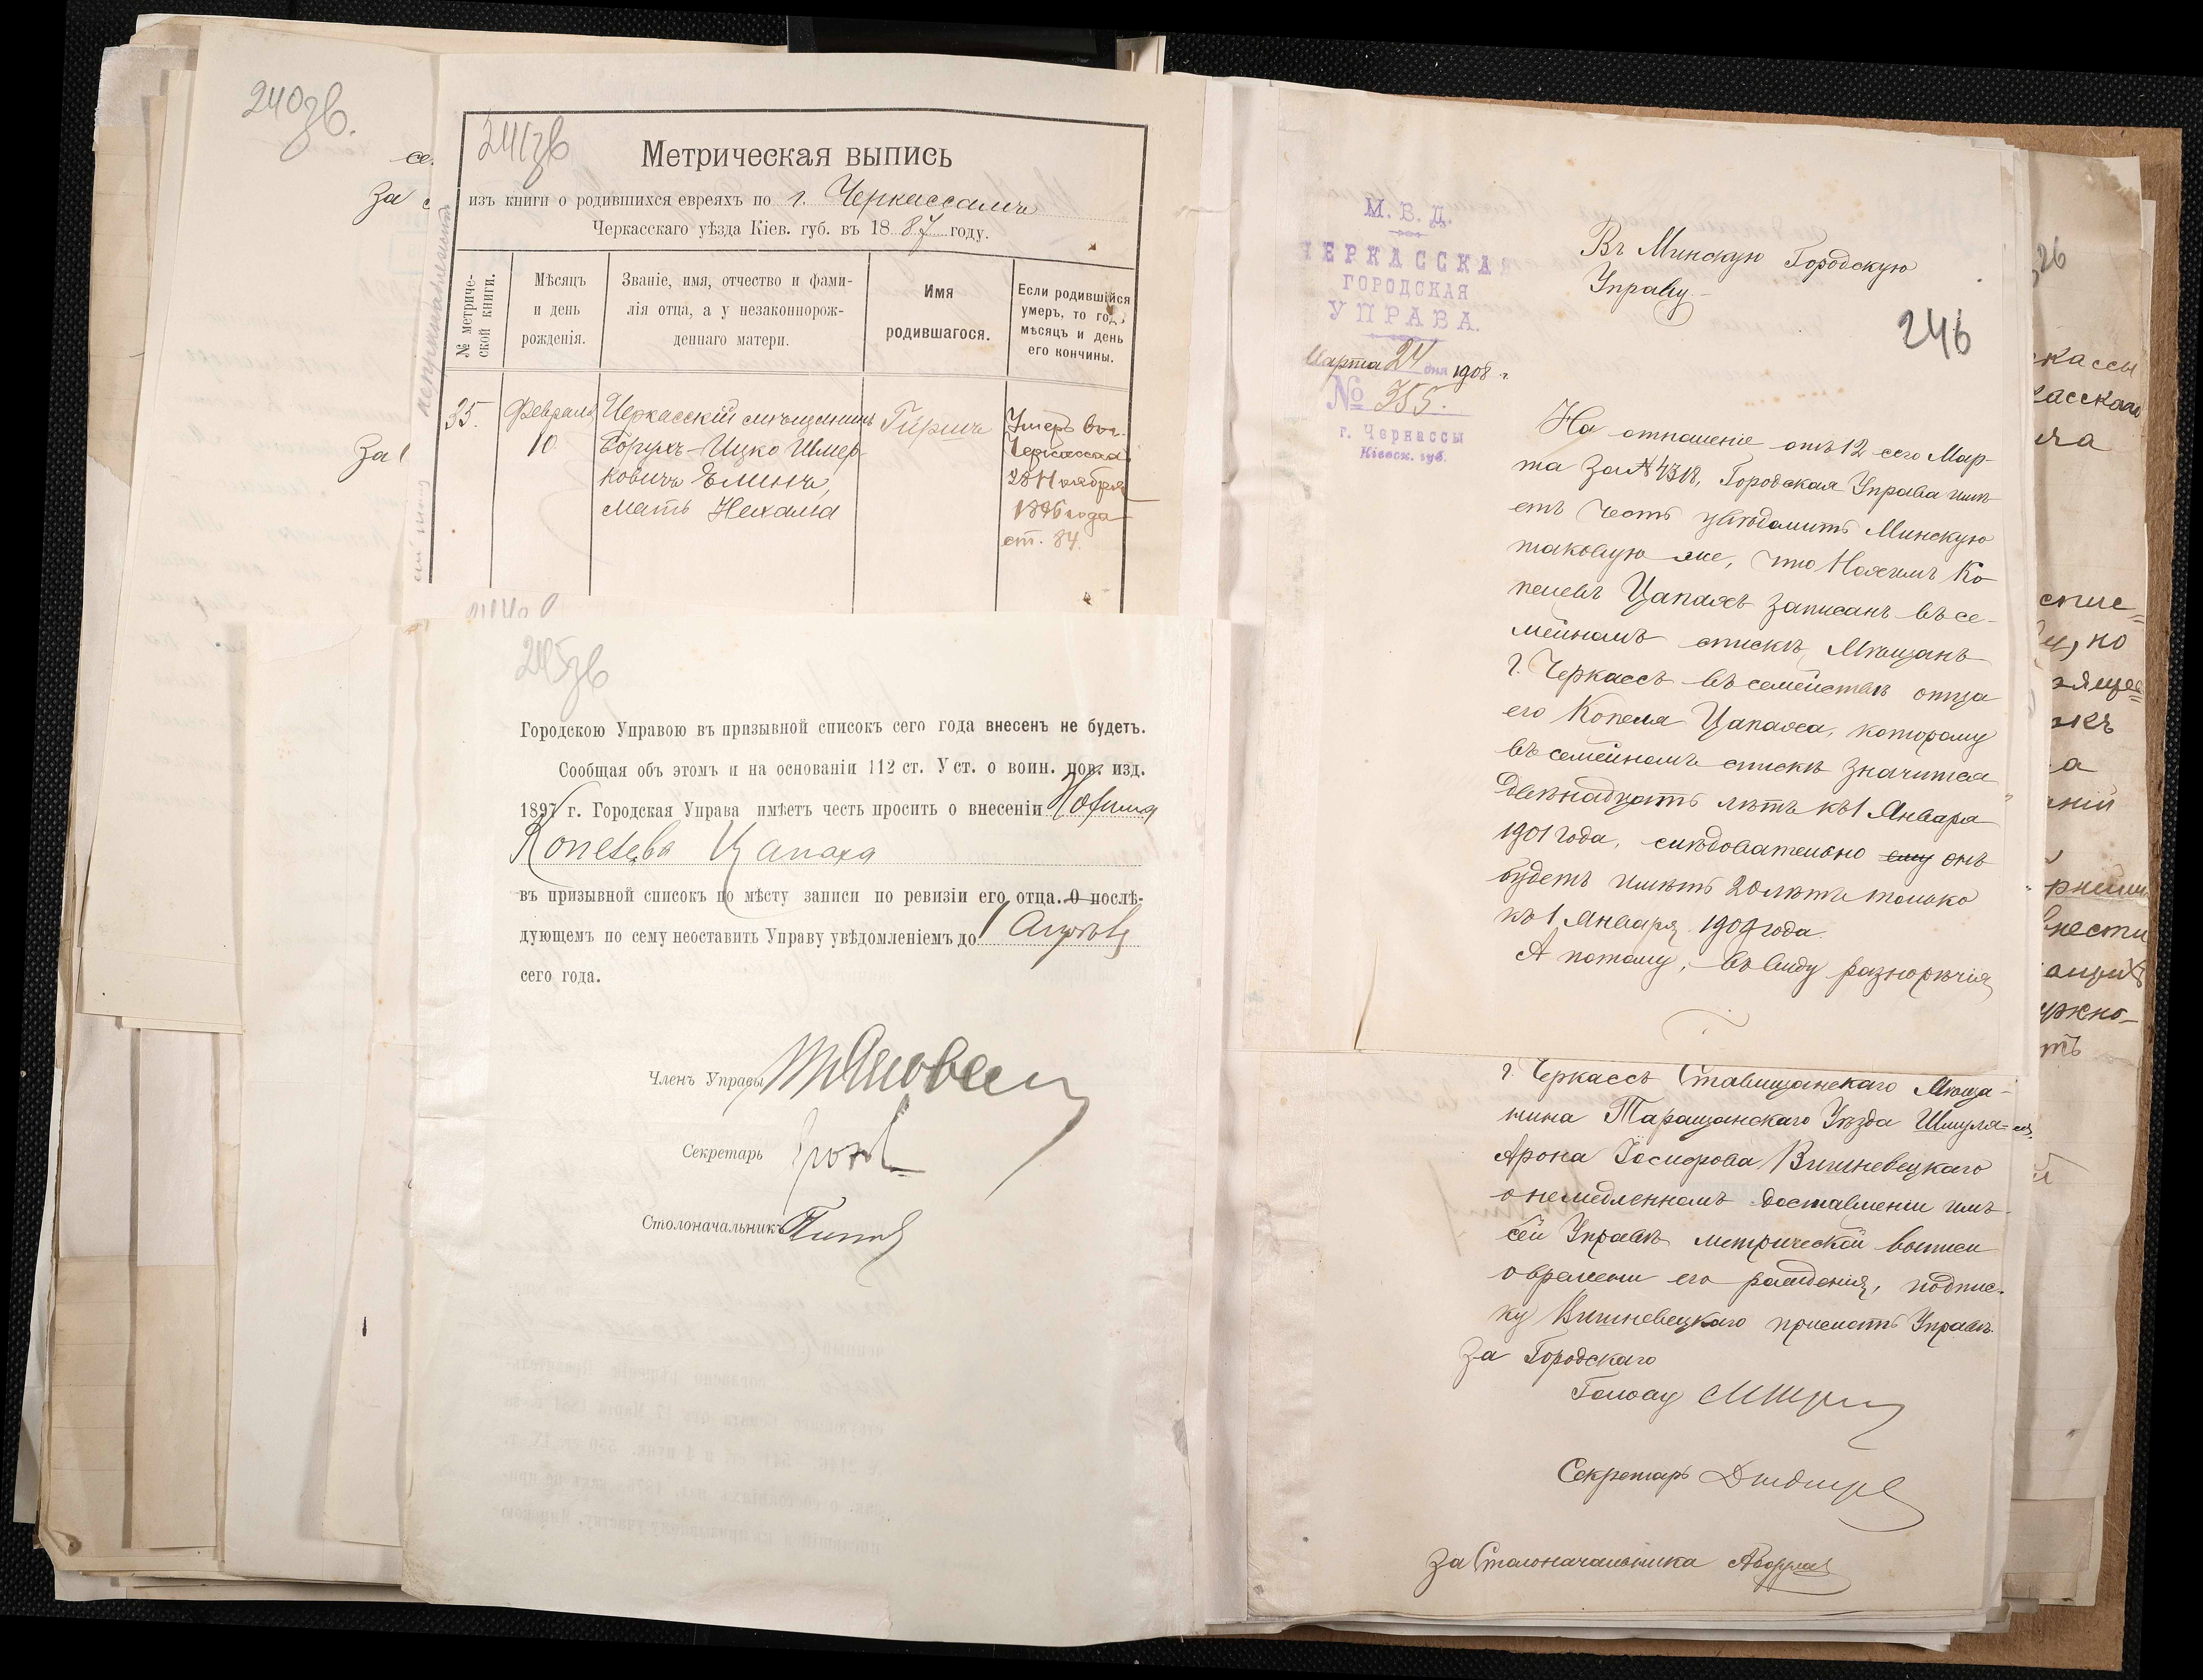 240зв.
се.
За с
За
241зв
Метрическая выпись
изъ книги о родившихся евреяхъ по г. Черкассамъ
Черкасскаго уѣзда Кіев. губ. въ 1887 году.
№ метриче-
ской книги.
Мѣсяцъ
и день
рожденія.
Званіе, имя, отчество и фами-
лія отца, а у незаконнорож-
деннаго матери.
Имя
родившагося.
Если родившійся
умеръ, то годъ,
мѣсяцъ и день
его кончины.
35.
Февраля
10
Черкасскій мѣщанинъ
Борухъ-Ицко Шмер-
ковичъ Элинъ,
мать Нехама
Гиршъ
Умеръ въ г.
Черкассах
28 Ноября
1896 года
ст. 84.
245зв
Городскою Управою въ призывной списокъ сего года внесенъ не будетъ.
Сообщая объ этомъ и на основаніи 112 ст. Уст. о воин. пов. изд.
1897 г. Городская Управа имѣетъ честь просить о внесеніи Нохима
Копелева Цапаха
въ призывной списокъ по мѣсту записи по ревизіи его отца. О послѣ-
дующемъ по сему неоставить Управу увѣдомленіемъ до 1 Апрѣля
сего года.
Членъ Управы
Секретарь
Столоначальникъ
М. В. Д.
ЧЕРКАССКАЯ
ГОРОДСКАЯ
УПРАВА.
Марта 24 дня 1908 г.
№ 355.
г. Черкассы
Кіевск. губ.
Въ Минскую Городскую
Управу.-
246
На отношеніе отъ 12 сего Мар-
та за № 4318, Городская Управа имѣ-
етъ честь увѣдомить Минскую
таковую же, что Нохимъ Ко-
пелевъ Цапахъ записанъ въ се-
мейномъ спискѣ Мѣщанъ
г. Черкассъ въ семействѣ отца
его Копеля Цапаха, которому
въ семейномъ спискѣ значится
двѣнадцать лѣтъ къ 1 Января
1901 года, слѣдовательно ему онъ
будетъ имѣть 20 лѣтъ только
къ 1 Января 1909 года
А потому, въ виду разнорѣчія
г. Черкассъ Ставищанскаго Мѣща-
нина Таращанскаго Уѣзда Шмуля-
Арона Іосифова Вишневецкаго
о немедленномъ доставленіи имъ
сей Управѣ метрической выписи
о времени его рожденія, подпис-
ку Вишневецкаго прислать Управѣ.
За Городского
Голову
Секретарь
За Столоначальника
326
кассы
касскаго
спис=
но
внести